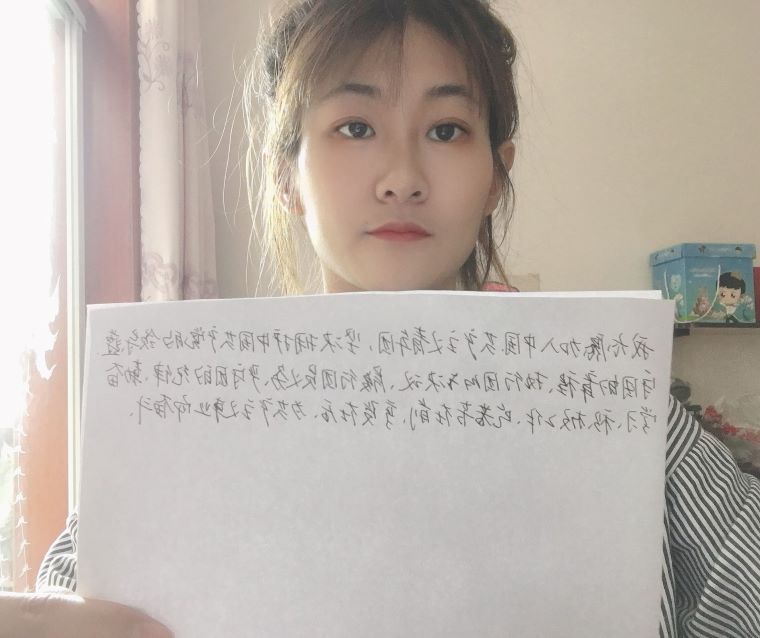 我志愿加入中国共产主义青年团，坚决拥护中国共产党的领导，遵
守团的章程、执行团的决议、履行团员义务、严守团的纪律、勤奋
学习、积极工作、吃苦在前、享受在后、为共产主义事业而奋斗、